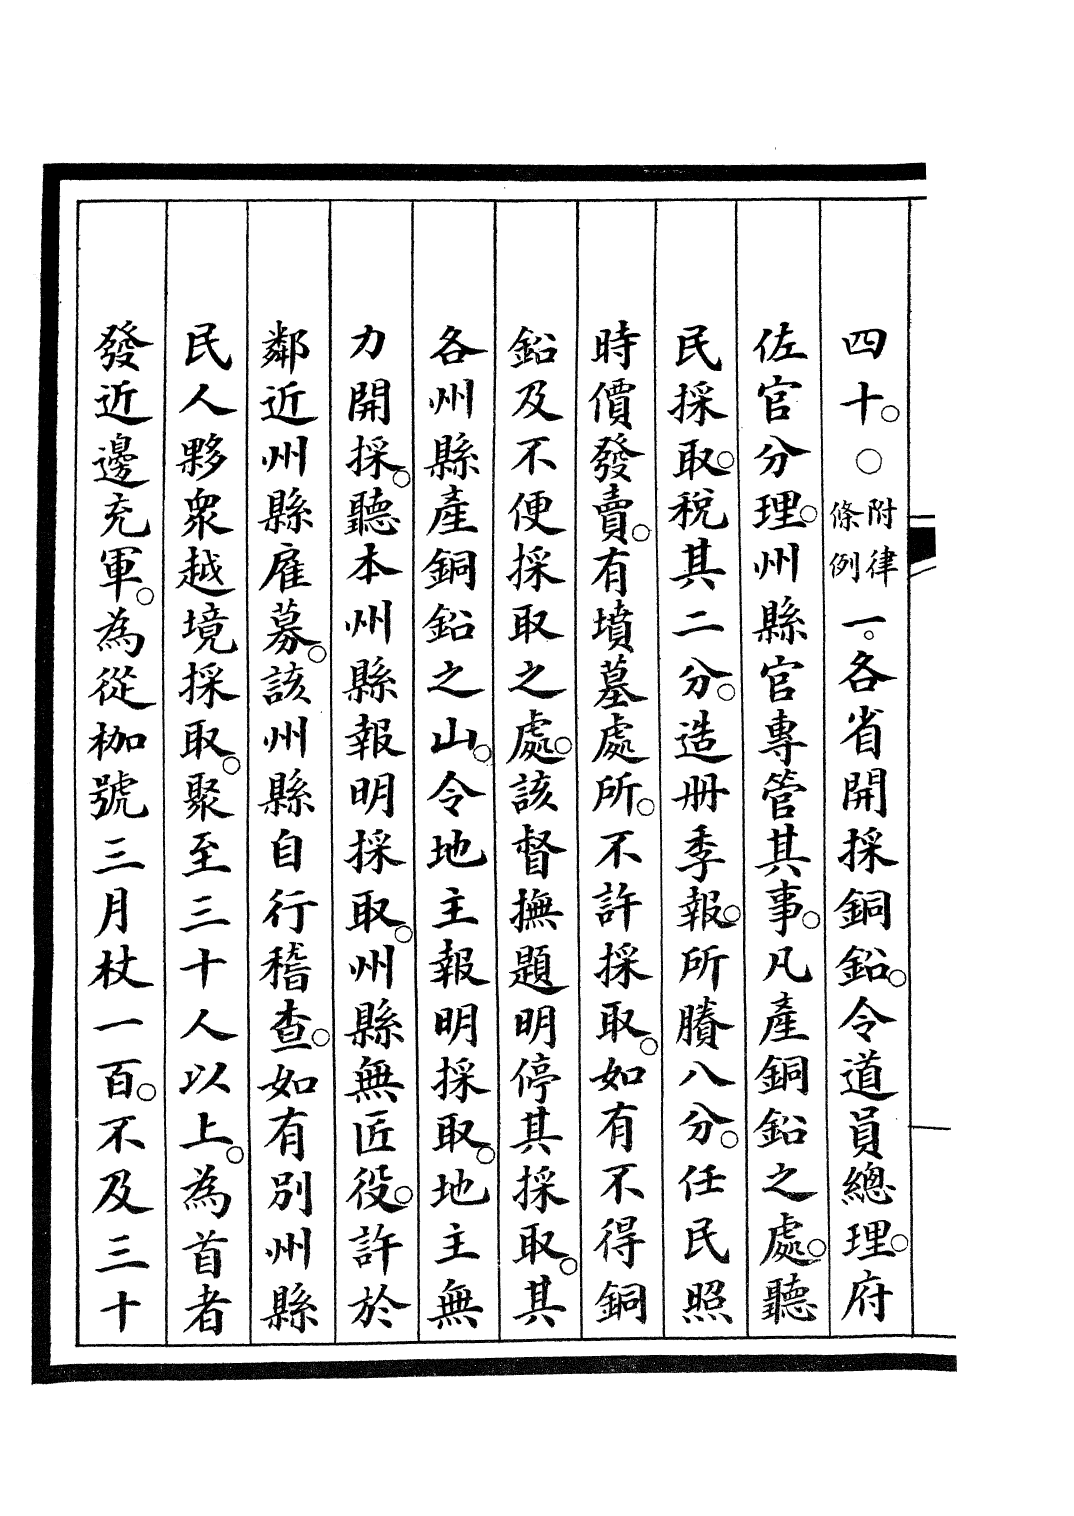 四十。○附律條例一。各省開採銅鉛。令道員總理。府
佐官分理。州縣官專管其事。凡產銅鉛之處。聽
民採取。稅其二分。造冊季報。所賸八分。任民照
時價發賣。有墳墓處所。不許採取。如有不得銅
鉛及不便採取之處。該督撫題明停其採取。其
各州縣產銅鉛之山。令地主報明採取。地主無
力開採。聽本州縣報明採取。州縣無匠役。許於
鄰近州縣雇募。該州縣自行稽查。如有別州縣
民人夥衆越境採取。聚至三十人以上。為首者
發近邊充軍。為從枷號三月杖一百。不及三十